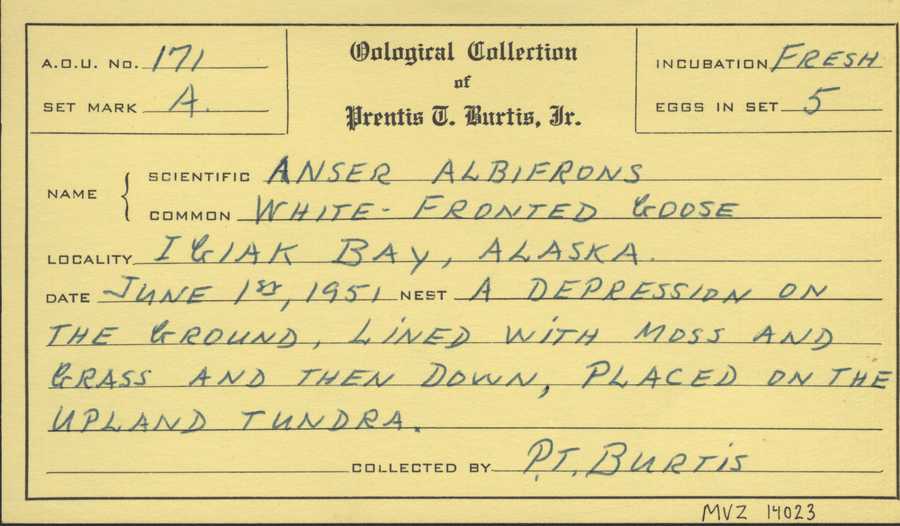 A.O.U. No. 171
SET MARK A.
Oological Collection
of
Prentis T. Burtis, Jr.
INCUBATION FRESH
EGGS IN SET 5
NAME
SCIENTIFIC ANSER ALBIFRONS
COMMON WHITE-FRONTED GOOSE
LOCALITY IGIAK BAY, ALASKA.
DATE JUNE 1st, 1951 NEST A DEPRESSION ON
THE GROUND, LINED WITH MOSS AND
GRASS AND THEN DOWN, PLACED ON THE
UPLAND TUNDRA.
COLLECTED BY P.T. BURTIS
MVZ 14023